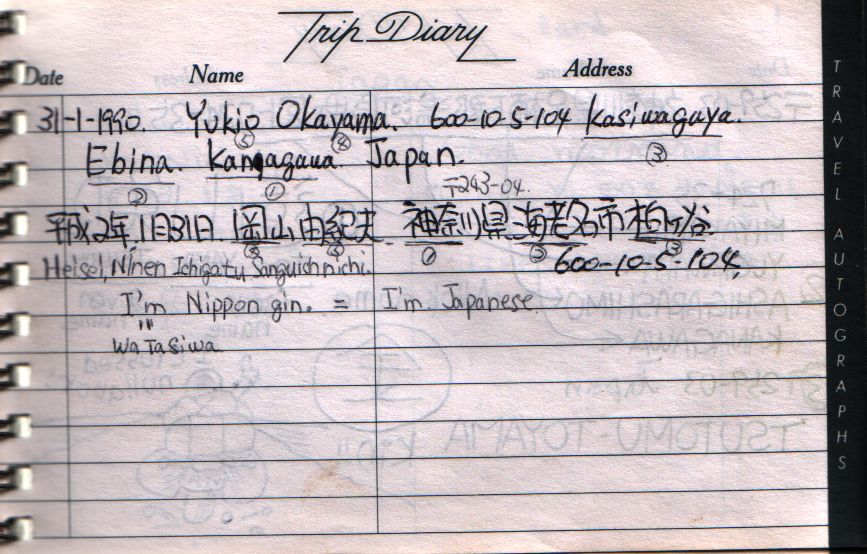 Trip Diary
Date Name Address
31-1-1990. Yukio Okayama. 600-10-5-104 Kasiwagaya.
⑤ ④ ③
Ebina. Kanagawa Japan.
② ① 〒243-04.
平成2年1月31日. 岡山由紀夫 神奈川県海老名市柏ヶ谷.
① ② ③ 600-10-5-104,
Heisei, Ninen Ichigatu Sanguichnichi.
I'm Nippon gin. = I'm Japanese.
Watasiwa
TRAVEL AUTOGRAPHS